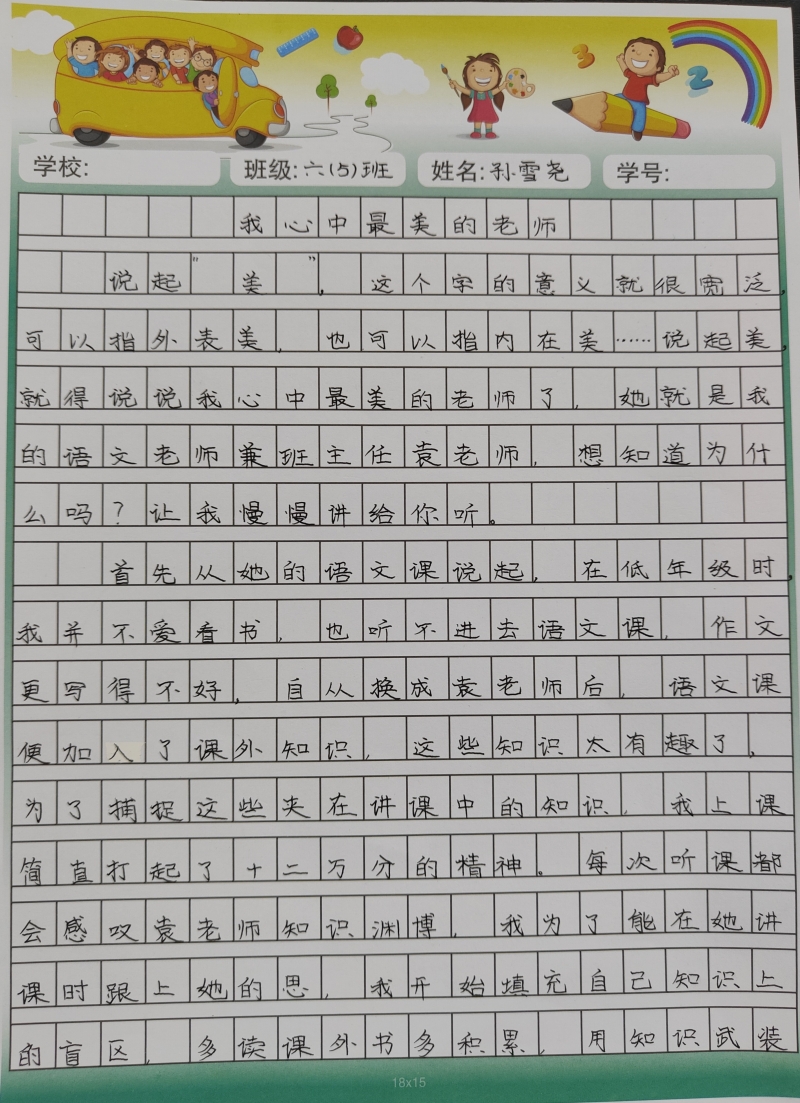 3 2
学校: 班级:六(5)班 姓名:孙雪尧 学号:
我心中最美的老师
说起"美",这个字的意义就很宽泛,
可以指外表美,也可以指内在美……说起美,
就得说说我心中最美的老师了,她就是我
的语文老师兼班主任袁老师,想知道为什
么吗?让我慢慢讲给你听。
首先从她的语文课说起,在低年级时,
我并不爱看书,也听不进去语文课,作文
更写得不好,自从换成袁老师后,语文课
便加入了课外知识,这些知识太有趣了,
为了捕捉这些夹在讲课中的知识,我上课
简直打起了十二万分的精神。每次听课都
会感叹袁老师知识渊博,我为了能在她讲
课时跟上她的思,我开始填充自己知识上
的盲区,多读课外书多积累,用知识武装
18x15